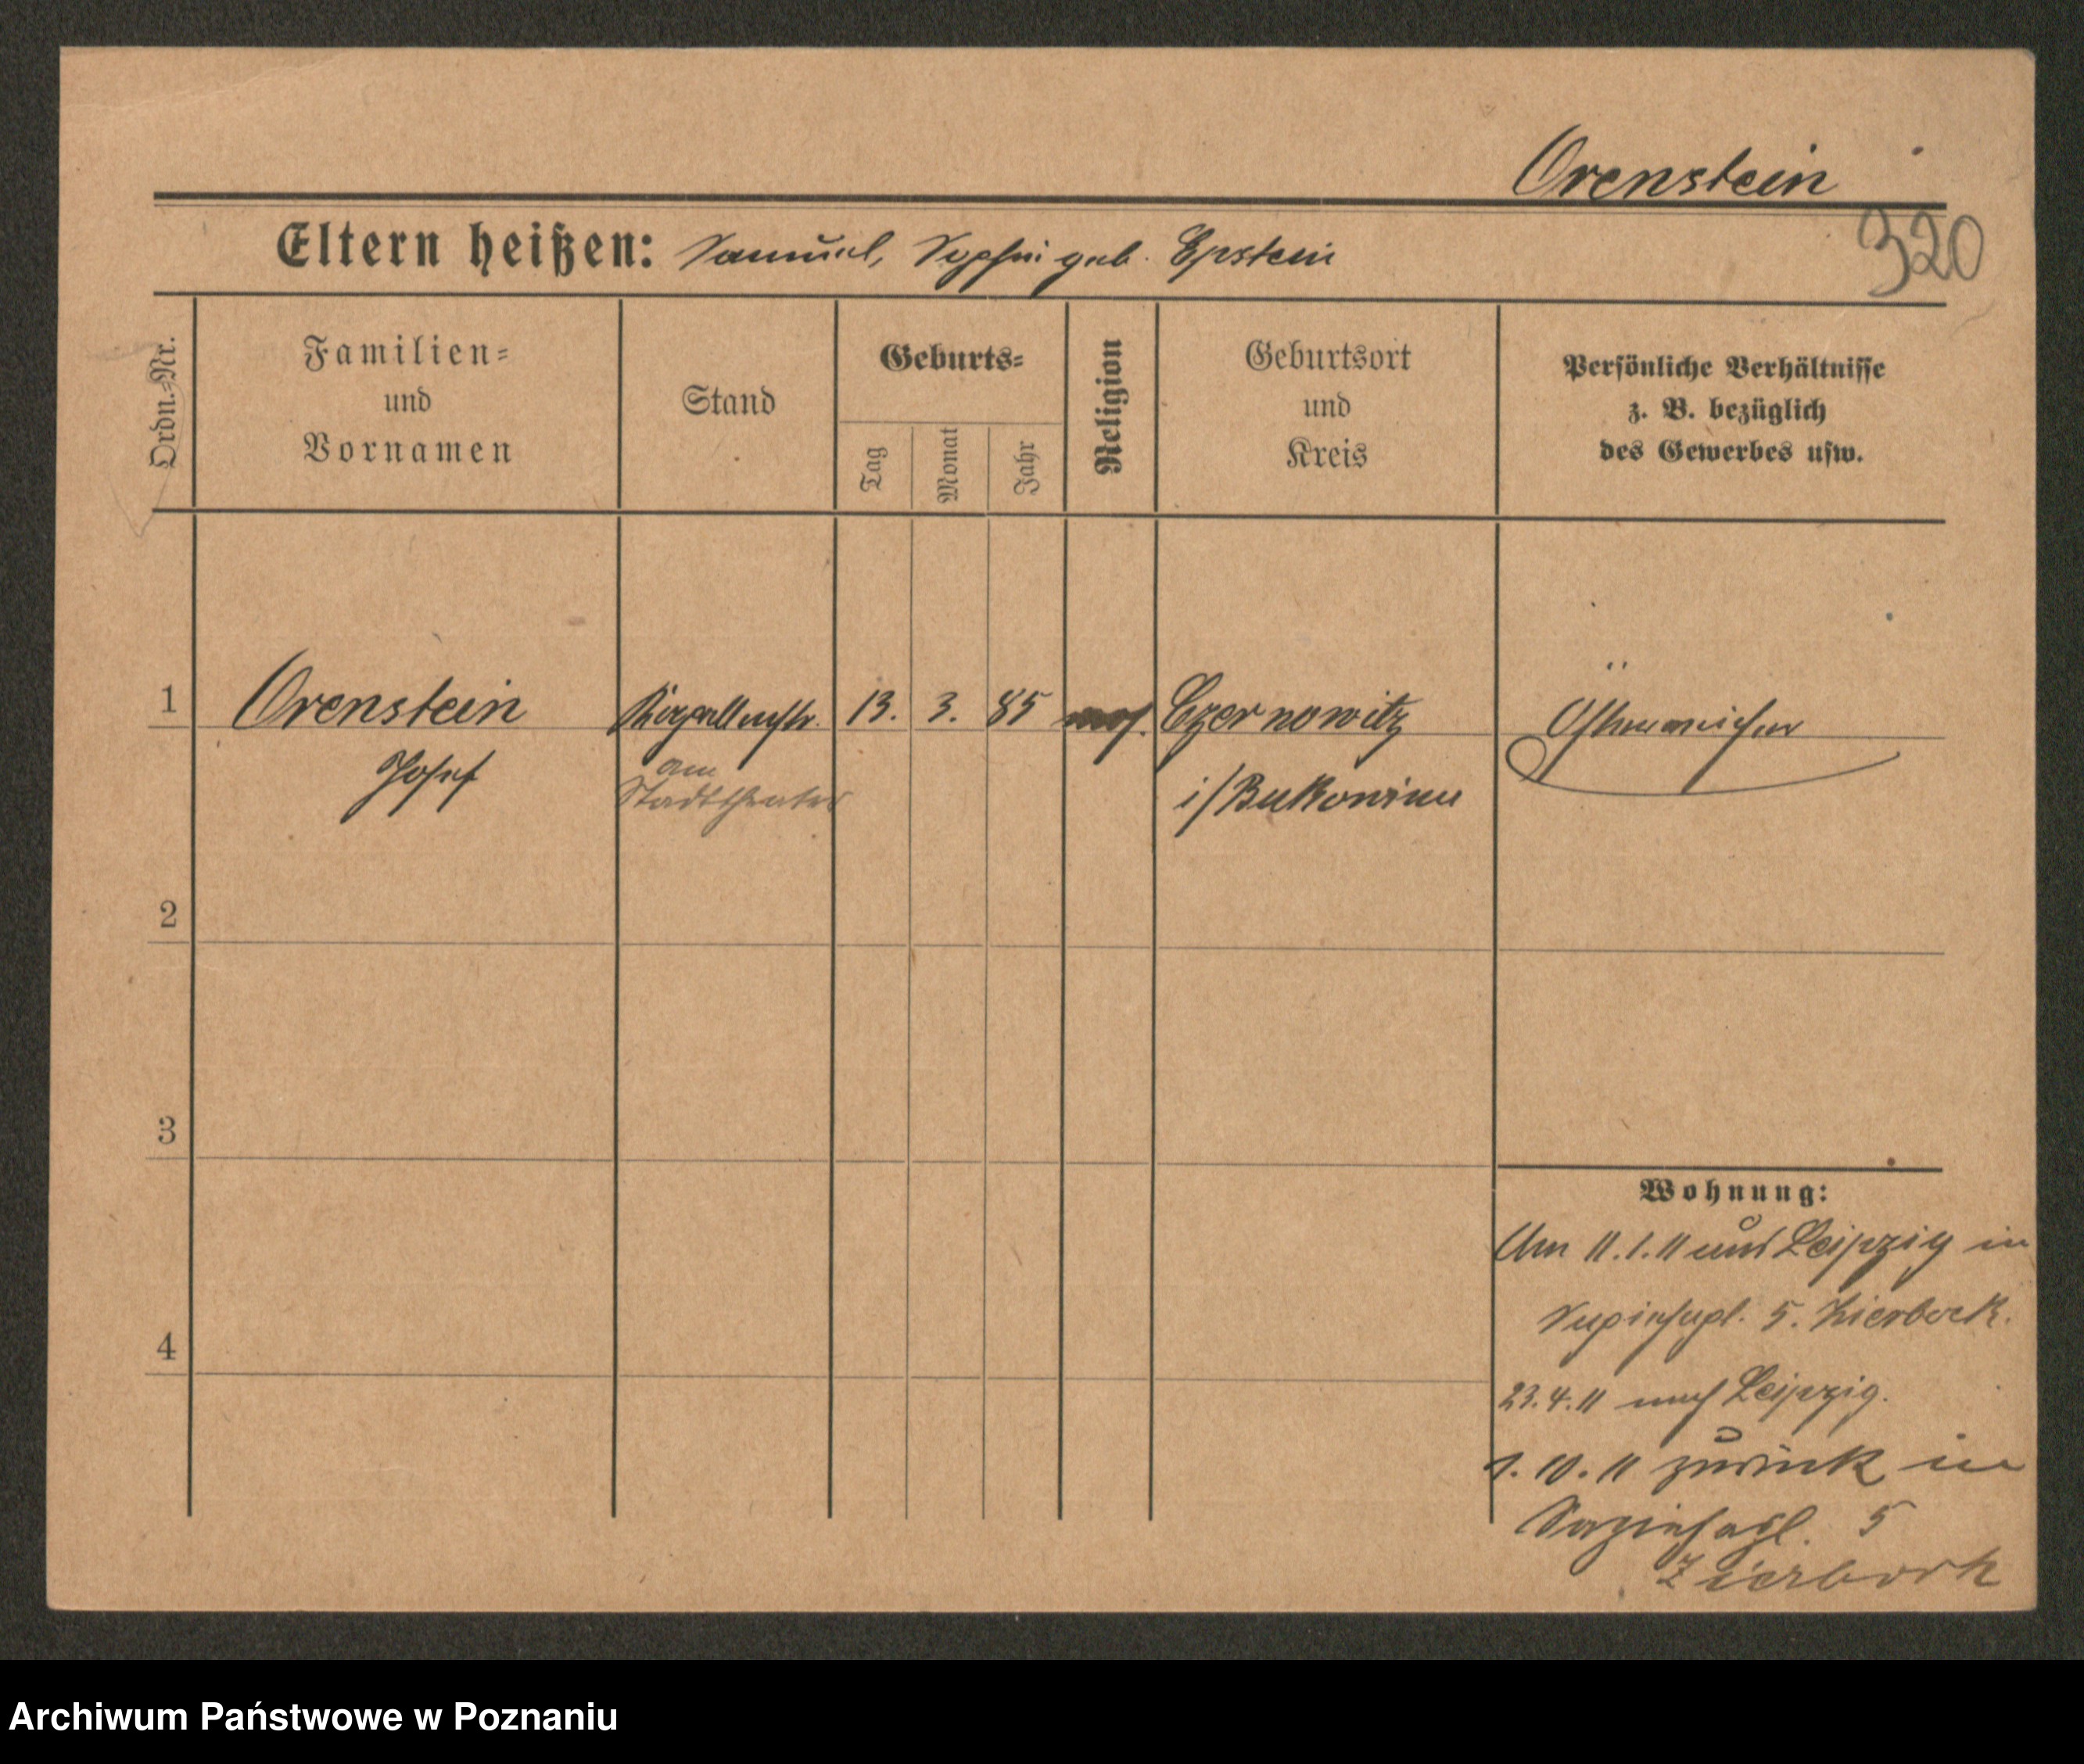 Orenstein
320
Eltern heißen: Samuel, Sophie geb. Epstein
Ordn.-Nr.
Familien-
und
Vornamen
Stand
Geburts-
Tag
Monat
Jahr
Religion
Geburtsort
und
Kreis
Persönliche Verhältnisse
z. B. bezüglich
des Gewerbes usw.
1 Orenstein Kapellmstr. 13. 3. 85 mos. Czernowitz Österreicher
Josef am i/Bukowina
Stadttheater
2
3
4
Wohnung:
Am 11.1.11 aus Leipzig in
Sapiehapl. 5. Zierbock.
23.4.11 nach Leipzig.
1.10.11 zurück in
Sapiehapl. 5
Zierbock
Archiwum Państwowe w Poznaniu